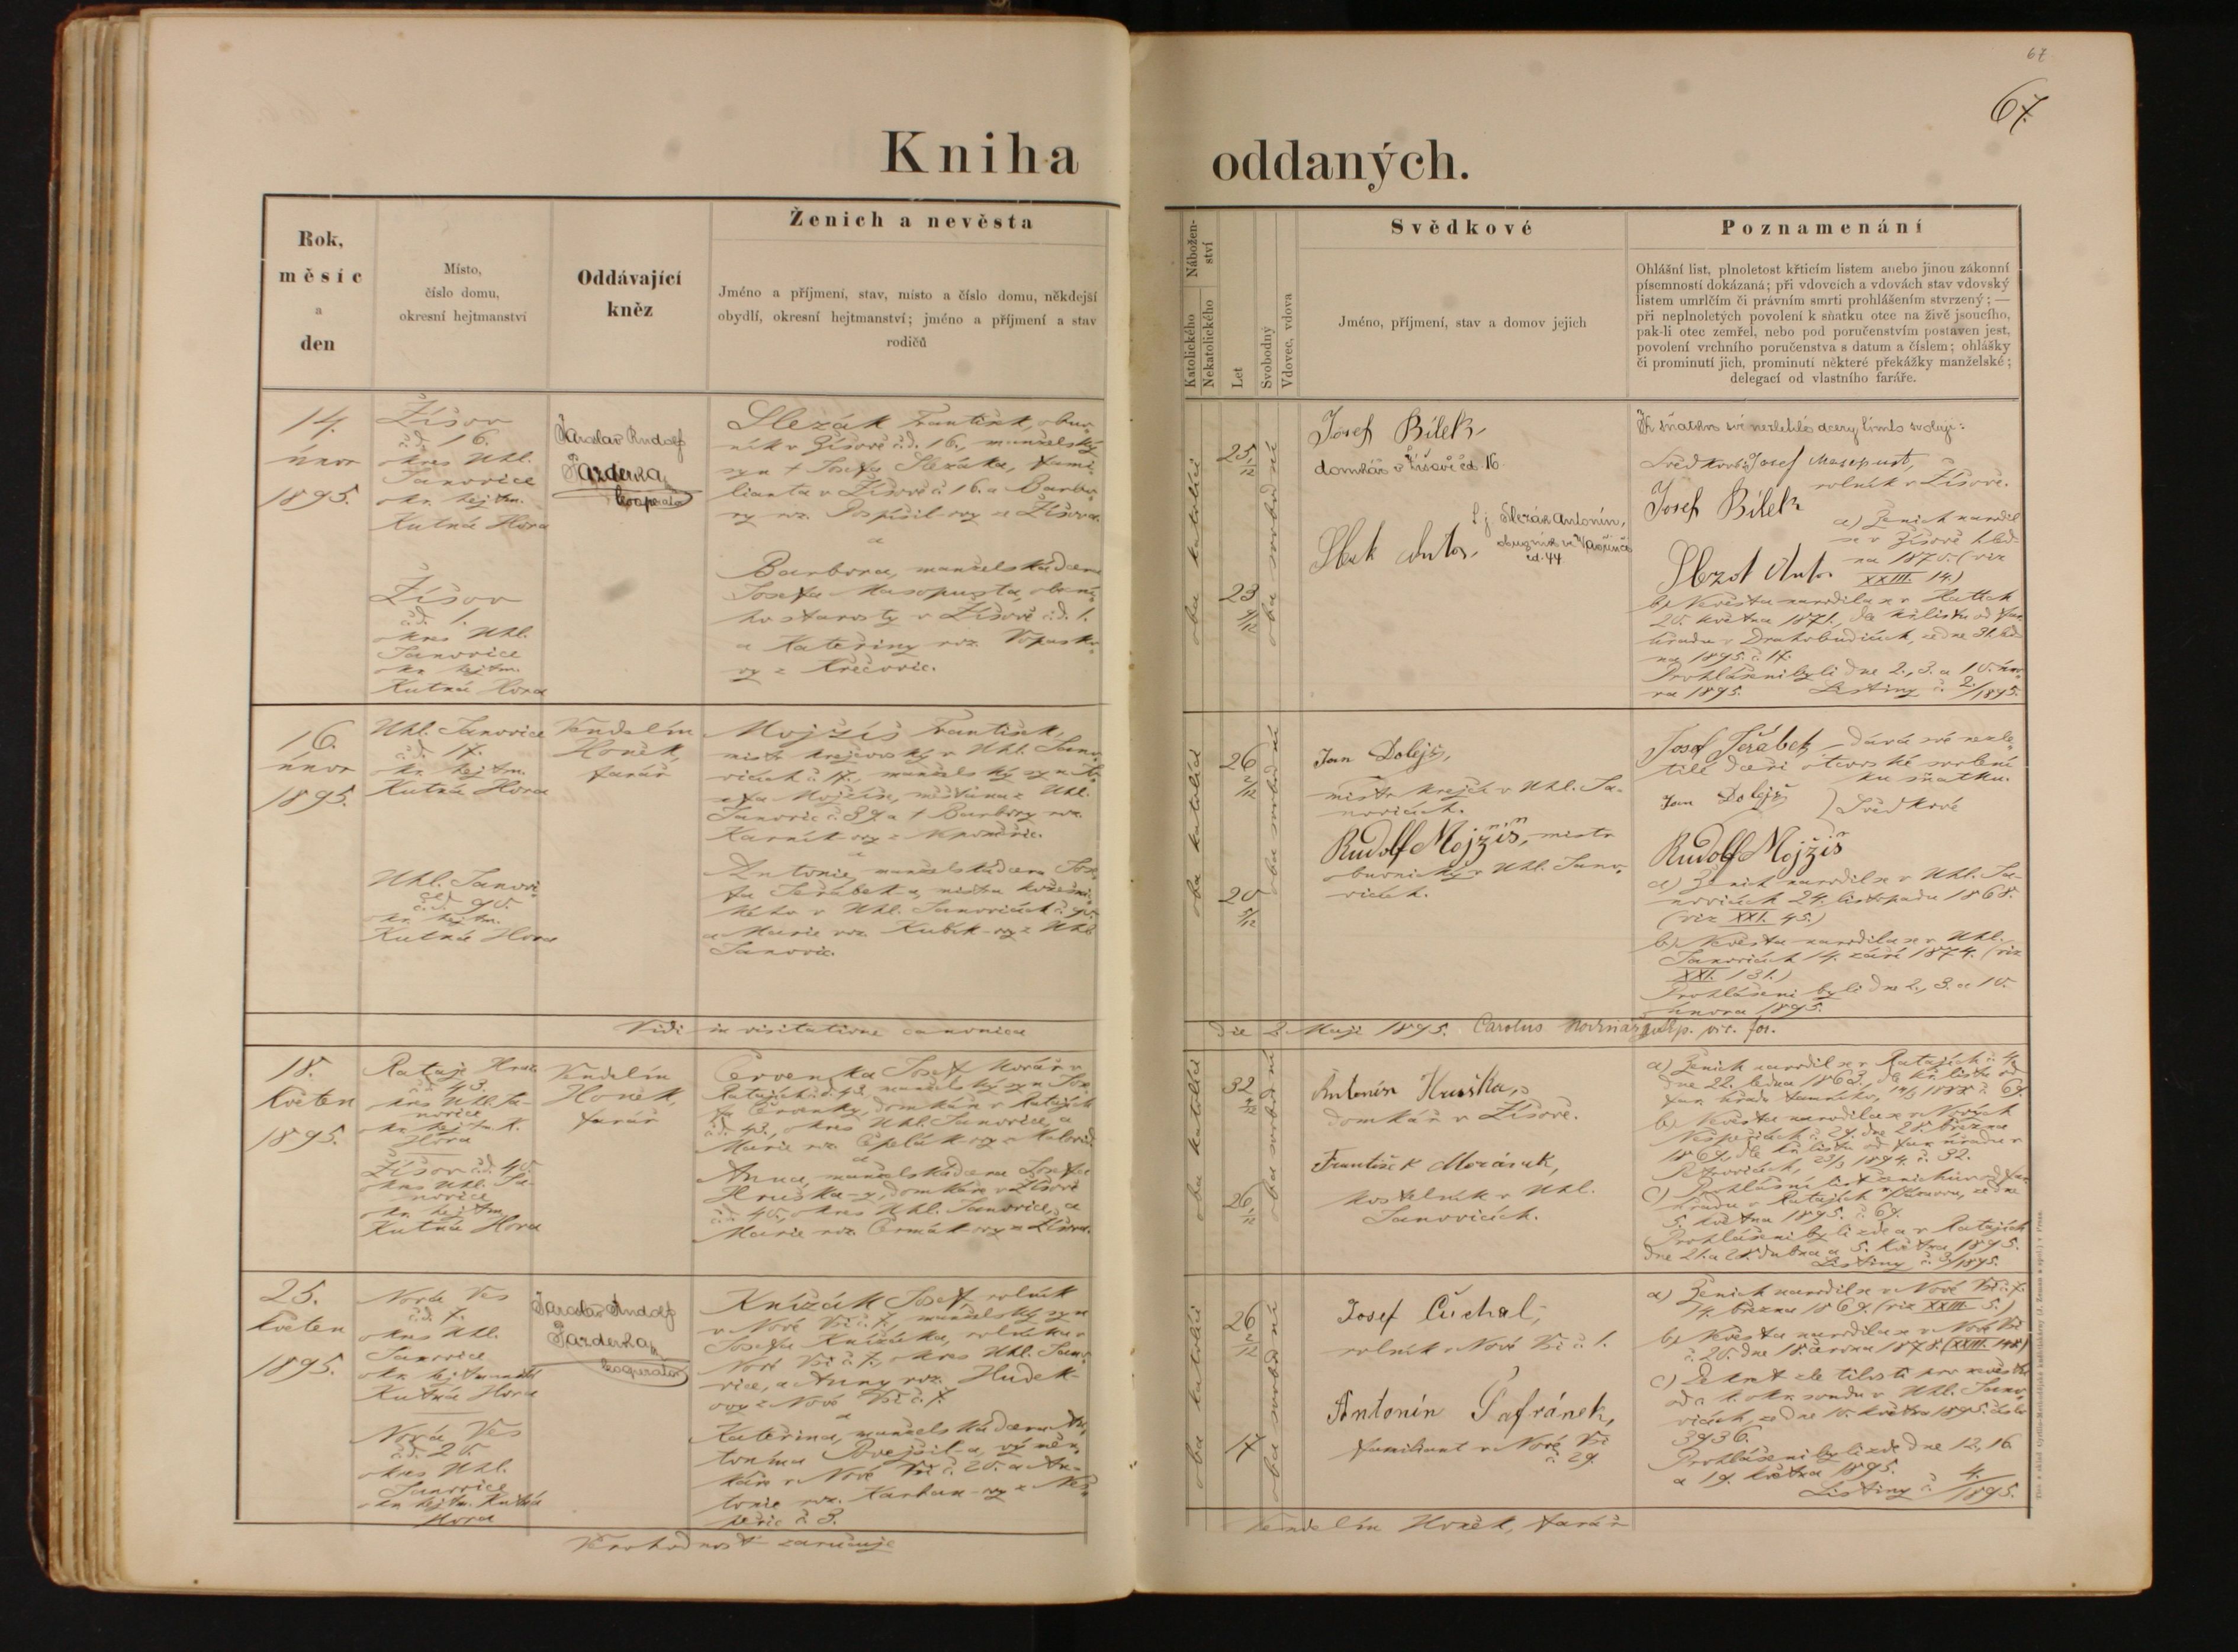 67
67.
Kniha oddaných.
Rok,
měsíc
a
den
Místo,
číslo domu,
okresní hejtmanství
Oddávající
kněz
Ženich a nevěsta
Jméno a příjmení, stav, místo a číslo domu, někdejší
obydlí, okresní hejtmanství; jméno a příjmení a stav
rodičů
Nábožen-
ství
Katolického
Nekatolického
Let
Svobodný
Vdovec, vdova
Svědkové
Jméno, příjmení, stav a domov jejich
Poznamenání
Ohlášní list, plnoletost křticím listem anebo jinou zákonní
písemností dokázaná; při vdovcích a vdovách stav vdovský
listem umrlčím či právním smrti prohlášením stvrzený; —
při neplnoletých povolení k sňatku otce na živě jsoucího,
pak-li otec zemřel, nebo pod poručenstvím postaven jest,
povolení vrchního poručenstva s datum a číslem; ohlášky
či prominutí jich, prominutí některé překážky manželské;
delegací od vlastního faráře.
14.
únor
1895.
Žíšov
č.d. 16.
okres Uhl.
Janovice
okr. hejtm.
Kutná Hora
Žíšov
č.d. 1.
okres Uhl.
Janovice
okr. hejtm.
Kutná Hora
Jaroslav Rudolf
Pazderka,
kooperator
Slezák František, obuv-
ník v Žíšově č.d. 16., manželský
syn † Josefa Slezáka, fami-
lianta v Žíšově č. 16. a Barbo-
ry roz. Pospíšil-ovy z Žíšova.
a
Barbora, manželská dcera
Josefa Masopusta, obecní-
ho starosty v Žíšově č.d. 1.
a Kateřiny roz.
z Křečovic.
oba katolíci
25
23
oba svobodní
Josef Bílek,
domkář v Žíšově čd. 16.
t.j. Slezák Antonín,
čd. 44.
K sňatku své nezletilé dcery tímto svoluje:
Josef Masopust,
rolník v Žíšově.
Josef Bílek
a) Ženich narodil
se v Žíšově
1870. (viz
XXIII. 14.)
b) Nevěsta narodila se v
20. května 1871., dle kř. listu od far.
úřadu v Drahobudicích, ze dne 31. led-
na 1895. č. 17.
Prohlášeni byli dne 2., 3. a 10. úno-
ra 1895. Listiny č. 2/1895.
16.
únor
1895.
Uhl. Janovice
č.d. 17.
okr. hejtm.
Kutná Hora
Uhl. Janovi-
ce
č.d. 90.
okr. hejtm.
Kutná Hora
Vendelín
Honěk,
farář
Mojžíš František,
mistr krejčovský v Uhl. Jano-
vicích č. 17., manželský syn Jo-
sefa Mojžíše, měštana z Uhl.
Janovic č. 89. a † Barbory roz.
Karník-ovy z Nepoměřic.
a
Antonie, manželská dcera Jose-
fa Jeřábek-a, mistra kožešni-
ckého v Uhl. Janovicích č. 90.
a Marie roz. Kubík-ovy z Uhl.
Janovic.
oba katolíci
26
20
oba svobodní
Jan Dolejš,
mistr krejčí v Uhl. Ja-
novicích.
Rudolf Mojžíš, mistr
obuvnický v Uhl. Jano-
vicích.
Josef Jeřábek, dává své nezle-
tilé dceři otcovské svolení
ku sňatku.
Jan Dolejš } Svědkové
Rudolf Mojžíš
a) Ženich narodil se v Uhl. Ja-
novicích 24. listopadu 1868.
(viz XXI. 45.)
b) Nevěsta narodila se v Uhl.
Janovicích 14. září 1874. (viz
XXI. 131.)
Prohlášeni byli dne 2., 3. a 10.
února 1895.
Vidi in visitatione canonica die 2. Maji 1895. Carolus
18.
květen
1895.
Rataje Hrad.
č.d. 43.
okres Uhl. Ja-
novice
okr. hejtm. K.
Hora
Žíšov č.d. 40.
okres Uhl. Ja-
novice
okr. hejtm.
Kutná Hora
Vendelín
Honěk,
farář
Červenka Josef, kovář v
Ratajích č.d. 43., manželský syn Jose-
fa Červenky, domkáře v Ratajích
č.d. 43., okres Uhl. Janovice, a
Marie roz. Čapek-ovy z
a
Anna, manželská dcera Josefa
Hruška-y, domkáře v Žíšově
č.d. 40., okres Uhl. Janovice, a
Marie roz. Čermák-ovy z Žíšova.
oba katolíci
32
26
oba svobodní
Antonín Hruška,
domkář v Žíšově.
František Morávek,
kostelník v Uhl.
Janovicích.
a) Ženich narodil se v Ratajích č. 4.
dne 22. ledna 1863., dle kř. listu od
far. úřadu
b) Nevěsta narodila se v Nových
Nespeřicích č. 29. dne 28. března
1869. dle kř. listu od far. úřadu v
Petrovicích, 1894. č. 32.
c) Prohlášní list ženichův od far.
úřadu v Ratajích n/Sázavou, ze dne
5. května 1895. č. 69.
Prohlášeni byli zde a v Ratajích
dne 21. a 28. dubna a 5. května 1895.
Listiny č. 3/1895.
25.
květen
1895.
Nová Ves
č.d. 7.
okres Uhl.
Janovice
okr. hejtmanství
Kutná Hora
Nová Ves
č.d. 20.
okres Uhl.
Janovice
okr. hejtm. Kutná
Hora
Jaroslav Rudolf
Pazderka,
kooperator
Knížák Josef, rolník
v Nové Vsi č. 7., manželský syn
Josefa Knížáka, rolníka v
Nové Vsi č. 7., okres Uhl. Jano-
vice, a Anny roz. Hudek-
ovy z Nové Vsi č. 7.
a
Kateřina, manželská dcera An-
tonína Dvejšil-a, výmin-
káře v Nové Vsi č. 20. a An-
tonie roz. Karban-ovy z Nes-
peřic č. 3.
oba katolíci
26
17
oba svobodní
Josef Cuchal,
rolník v Nové Vsi č. 1.
Antonín Šafránek,
familiant v Nové Vsi
č. 29.
a) Ženich narodil se v Nové Vsi č. 7.
14. března 1869. (viz XXIII. 5.)
b) Nevěsta narodila se v Nové Vsi
č. 20. dne 18. června 1878. (XXIII.
c) Dekret zletilosti pro nevěstu
od c. k. okr. soudu v Uhl. Jano-
vicích, ze dne 10. května 1895. číslo
3936.
Prohlášeni byli zde dne 12., 16.
a 19. května 1895.
Listiny č. 4./1895.
Věrohodnost zaručuje Vendelín Honěk, farář